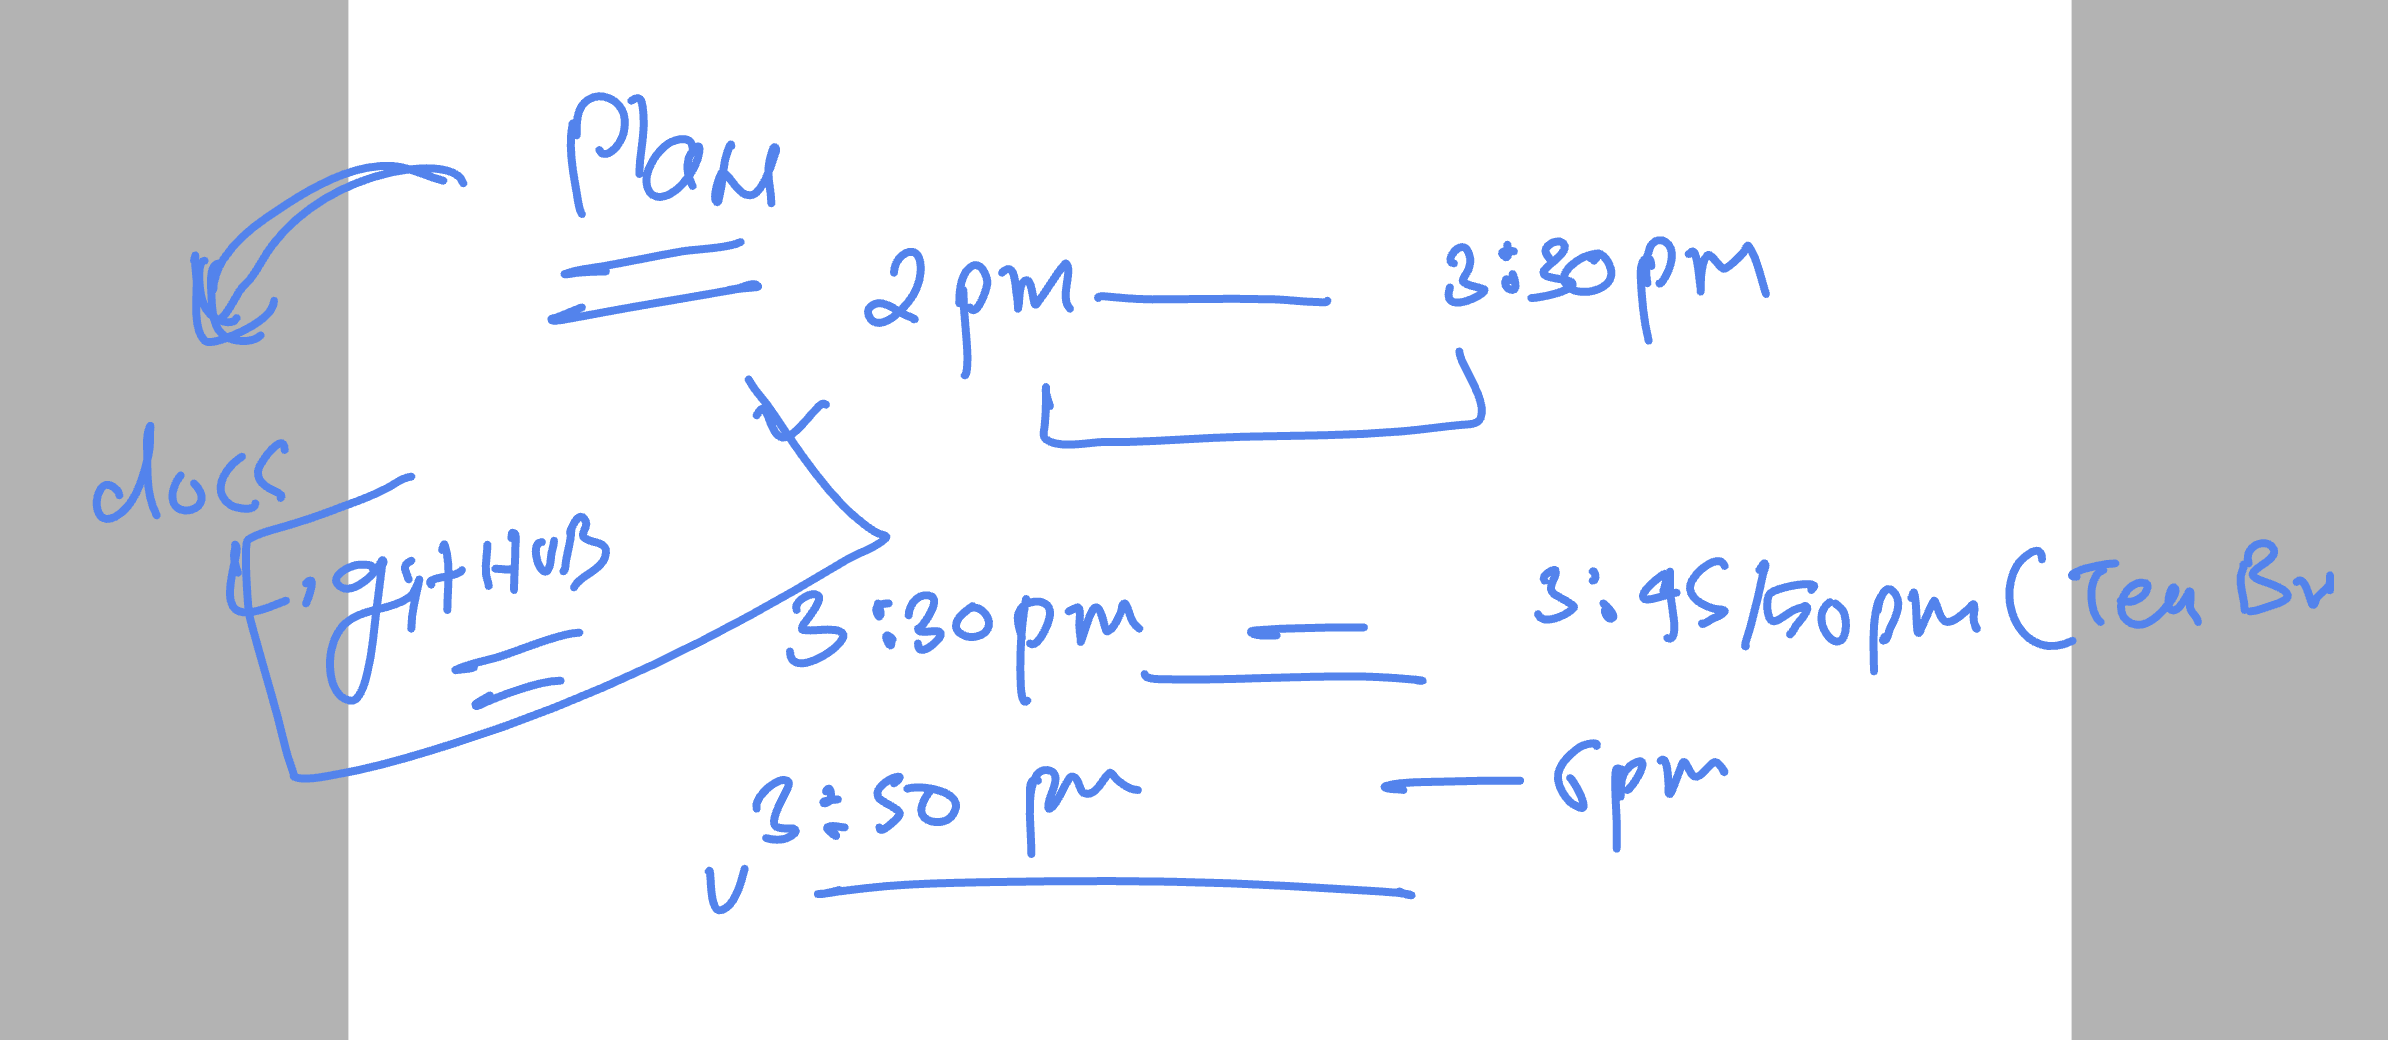 Plan
2 pm — 3:30 pm
docs
, gitHUB
3:30pm — 3:45/50pm (Tea Br
3:50 pm — 6pm